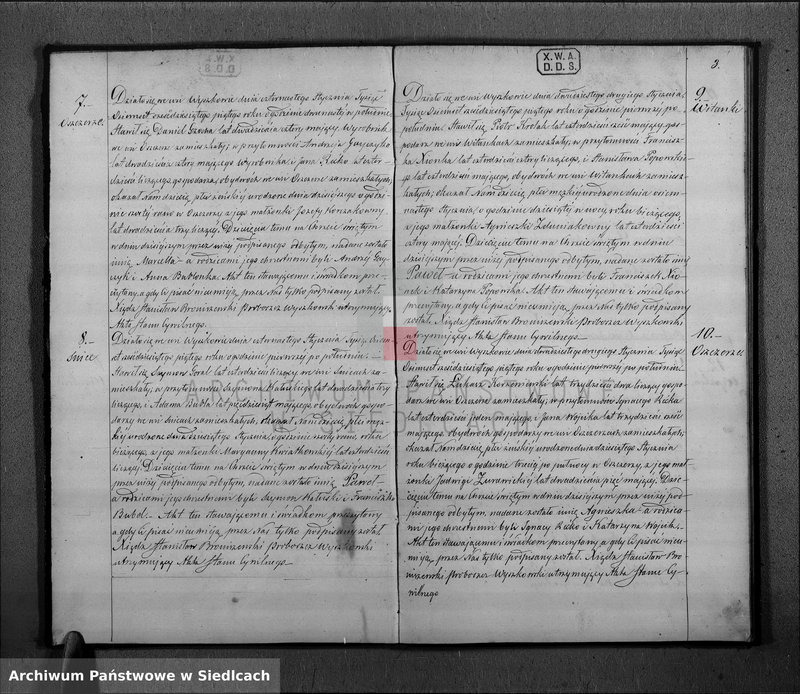 X.W.A.
D.D.S.
3.
7.
Oszczerze.
Działo się we wsi Wyszkowie dnia czternastego Stycznia Tysiąc
Ośmset sześćdziesiątego piątego roku o godzinie dwunastej w południe
Stawił się Daniel lat dwadzieścia cztery mający, Wyrobnik
we wsi zamieszkały, w przytomności Andrzeja
lat dwadzieścia cztery mającego Wyrobnika i Jana
liczącego, gospodarza, obydwóch we wsi zamieszkałych,
okazał Nam dziecię, płci żeńskiej urodzone dnia dzisiejszego o godzi-
nie szóstej rano w Oszczerzy z jego małżonki Józefy Korzakówny
lat dwadzieścia trzy liczącej. Dziecięciu temu na Chrzcie świętym
w dniu dzisiejszym przez niżej podpisanego odbytym, nadane zostało
imię Maryella a rodzicami jego chrzestnemi byli Andrzej
i Anna Akt ten stawającemu i świadkom prze-
czytany, a gdy ci pisać nieumieją, przez Nas tylko podpisany został.
Xiądz Stanisław Broniszewski Proboszcz Wyszkowski utrzymujący
Akta Stanu Cywilnego.
8.
Śnice.
Działo się we wsi Wyszkowie dnia czternastego Stycznia Tysiąc Ośm-
set sześćdziesiątego piątego roku o godzinie pierwszej po południu.
Stawił się Szymon Goral lat czterdzieści liczący we wsi Śnicach za-
mieszkały, w przytomności Szymona lat dwadzieścia cztery
liczącego, i Adama Bubla lat pięćdziesiąt mającego, obydwóch gospo-
darzy we wsi Śnicach zamieszkałych, okazał Nam dziecię, płci męz-
kiej urodzone dnia Stycznia, o godzinie szóstej rano, roku
bieżącego, z jego małżonki Maryanny Kwiatkowskiej lat czterdzieści
liczącej. Dziecięciu temu na Chrzcie świętym w dniu dzisiejszym
przez niżej podpisanego odbytym, nadane zostało imię Paweł
a rodzicami jego chrzestnemi byli Szymon i Franciszka
Bubel. Akt ten stawającemu i świadkom przeczytany
a gdy ci pisać nieumieją, przez Nas tylko podpisany został.
Xiądz Stanisław Broniszewski Proboszcz Wyszkowski
utrzymujący Akta Stanu Cywilnego
9.
Witanki
Działo się we wsi Wyszkowie dnia dwudziestego drugiego Stycznia,
Tysiąc Ośmset sześćdziesiątego piątego roku o godzinie pierwszej po
południu Stawił się Piotr Królak lat czterdzieści sześć mający, gos-
podarz we wsi Witankach zamieszkały, w przytomności Francisz-
ka Nionka lat czterdzieści liczącego, i Stanisława Poponskie-
go lat czterdzieści mającego, obydwóch we wsi Witankach zamiesz-
kałych, okazał Nam dziecię, płci męzkiej urodzone dnia ośm-
nastego Stycznia, o godzinie dziesiątej w nocy, roku bieżącego,
z jego małżonki Agnieszki Zduniakowny lat czterdzieści
cztery mającej. Dziecięciu temu na Chrzcie świętym w dniu
dzisiejszym przez niżej podpisanego odbytym, nadane zostało imię
Paweł a rodzicami jego chrzestnemi byli Franciszek Nio-
nek i Katarzyna Akt ten stawającemu i świadkom
przeczytany, a gdy ci pisać nieumieją, przez Nas tylko podpisany
został. Xiądz Stanisław Broniszewski Proboszcz Wyszkowski
utrzymujący Akta Stanu Cywilnego
10.
Oszczerze
Działo się we wsi Wyszkowie dnia dwudziestego drugiego Stycznia Tysiąc
Ośmset sześćdziesiątego piątego roku o godzinie pierwszej po południu.
Stawił się Łukasz Korzeniewski lat trzydzieści dwa liczący gospo-
darz we wsi zamieszkały, w przytomności Ignacego Kacka
lat czterdzieści jeden mającego, i Jana Wojnika lat trzydzieści ośm
mającego. Obydwóch gospodarzy we wsi Oszczerzach zamieszkałych,
okazał Nam dziecię, płci żeńskiej urodzone dwudziestego Stycznia
roku bieżącego o godzinie trzeciej po północy w Oszczerzy, z jego mał-
żonki Jadwigi Żurawskiej lat dwadzieścia pięć mającej. Dzie-
cięciu temu na Chrzcie świętym w dniu dzisiejszym przez niżej pod-
pisanego odbytym, nadane zostało imię Agnieszka a rodzica-
mi jego chrzestnemi byli Ignacy Kacko i Katarzyna Wojnik.
Akt ten stawającemu i świadkom przeczytany a gdy ci pisać nieu-
mieją, przez Nas tylko podpisany został. Xiądz Stanisław Bro-
niszewski Proboszcz Wyszkowski utrzymujący Akta Stanu Cy-
wilnego
Archiwum Państwowe w Siedlcach